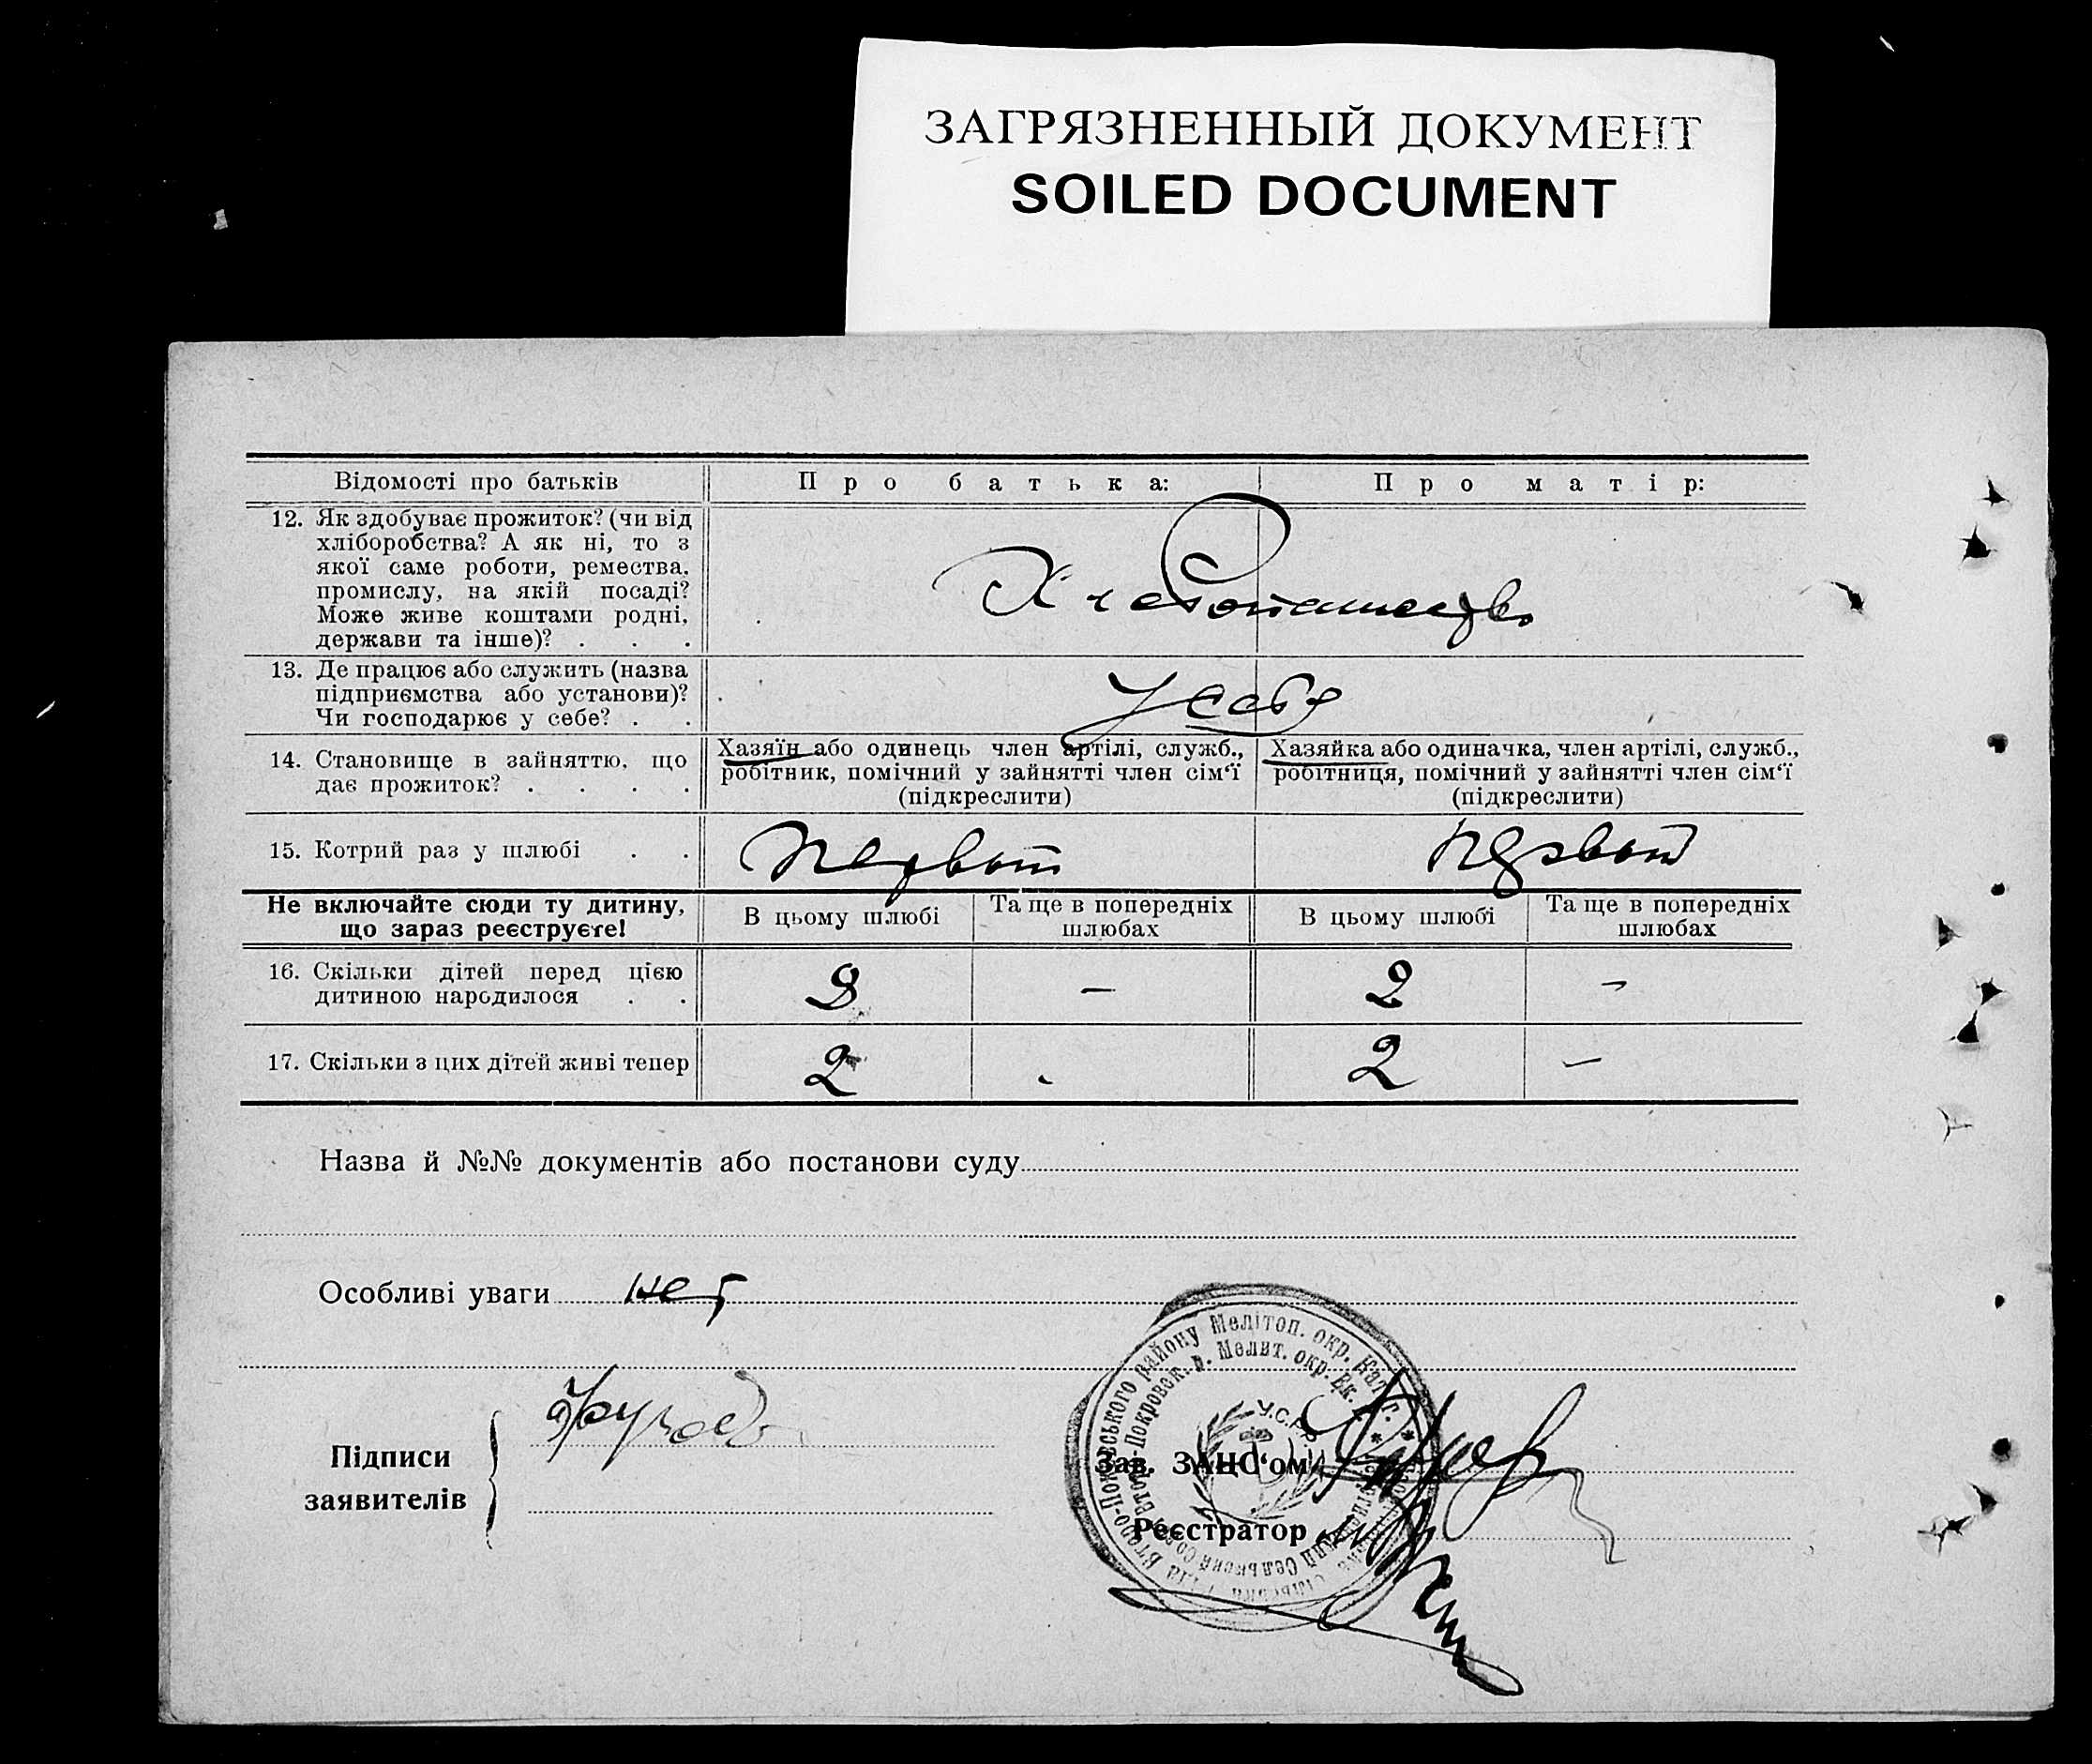 ЗАГРЯЗНЕННЫЙ ДОКУМЕНТ
SOILED DOCUMENT
Відомості про батьків
Про батька:
Про матір:
12. Як здобуває прожиток? (чи від
хліборобства? А як ні, то з
якої саме роботи, ремества,
промислу, на якій посаді?
Може живе коштами родні,
держави та інше)? . . .
Хлебопашество
13. Де працює або служить (назва
підприємства або установи)?
Чи господарює у себе? . .
у себя
14. Становище в зайняттю, що
дає прожиток? . . . .
Хазяїн або одинець член артілі, служб.,
робітник, помічний у зайнятті член сім‘ї
(підкреслити)
Хазяйка або одиначка, член артілі, служб.,
робітниця, помічний у зайнятті член сім‘ї
(підкреслити)
15. Котрий раз у шлюбі . .
первый
первый
Не включайте сюди ту дитину,
що зараз реєструєте!
В цьому шлюбі
Та ще в попередніх
шлюбах
В цьому шлюбі
Та ще в попередніх
шлюбах
16. Скільки дітей перед цією
дитиною народилося . .
–
2
–
17. Скільки з цих дітей живі тепер
2
2
–
Назва й №№ документів або постанови суду
Особливі уваги нет
Підписи
заявителів
Зав. ЗАНС‘ом
Реєстратор
району Мелітоп. окр.
Покровск. р. Мелит. окр.
У.С.Р.Р.